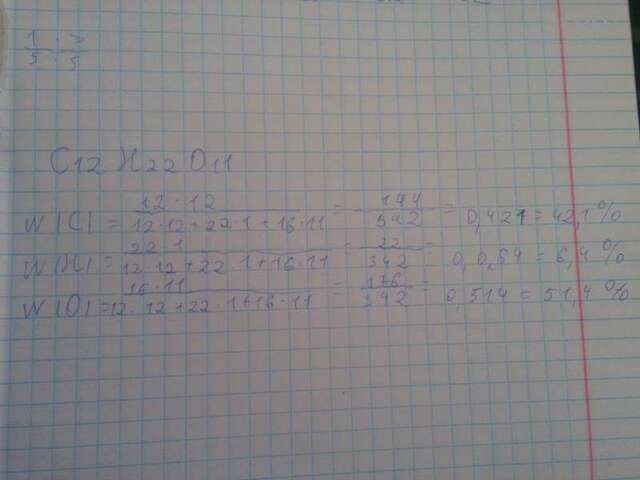 1 · 3
5 · 5
C12 H22 O11
W (C) = 12·12 / 12·12+22·1+16·11 = 144 / 342 = 0,421 = 42,1%
W(H) = 22 1 / 12 12+22·1+16·11 = 22 / 342 = 0,0,64 = 6,4%
W (O) = 16·11 / 12·12+22·1+16·11 = 176 / 342 = 0,514 = 51,4%